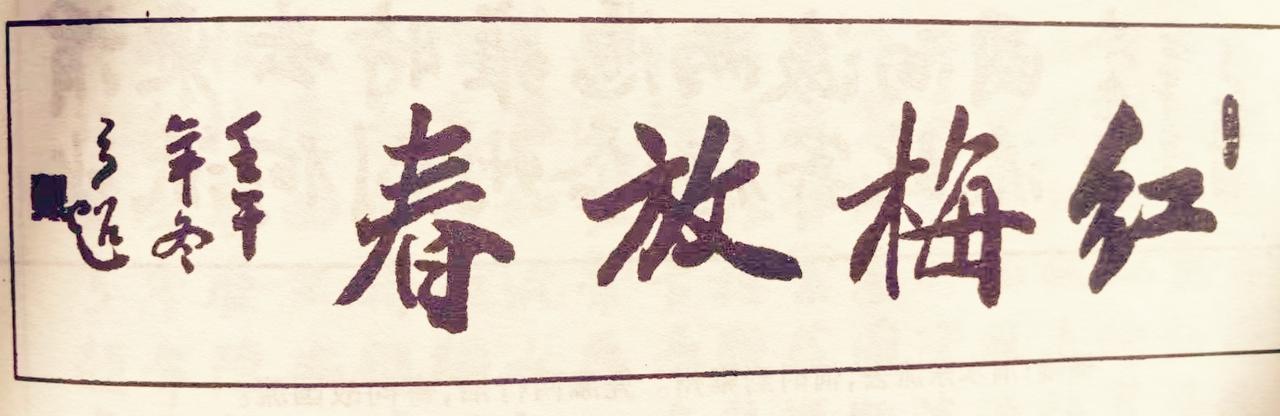 红梅放春
壬午
年冬